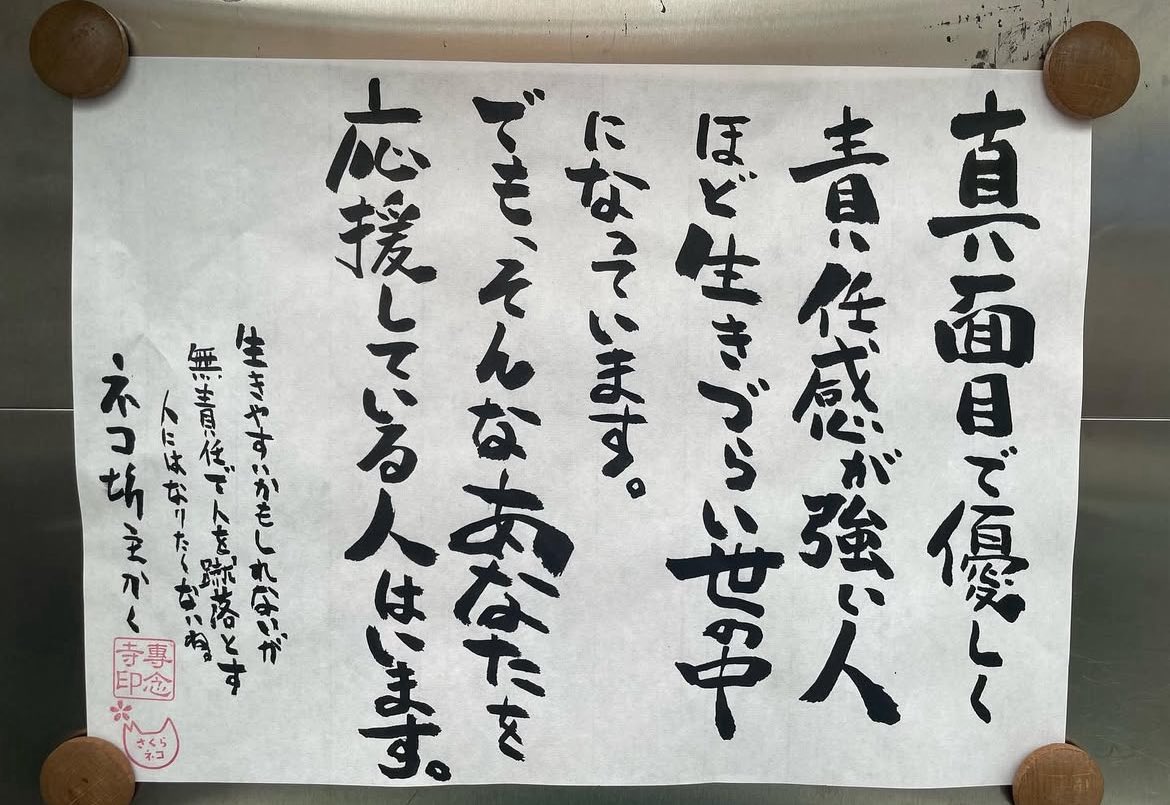 真面目で優しく
責任感が強い人
ほど生きづらい世の中
になっています。
でも、そんなあなたを
応援している人はいます。
生きやすいかもしれないが
無責任で人を蹴落とす
人にはなりたくないね
ネコ坊主かく
專念
寺印
さくら
ネコ